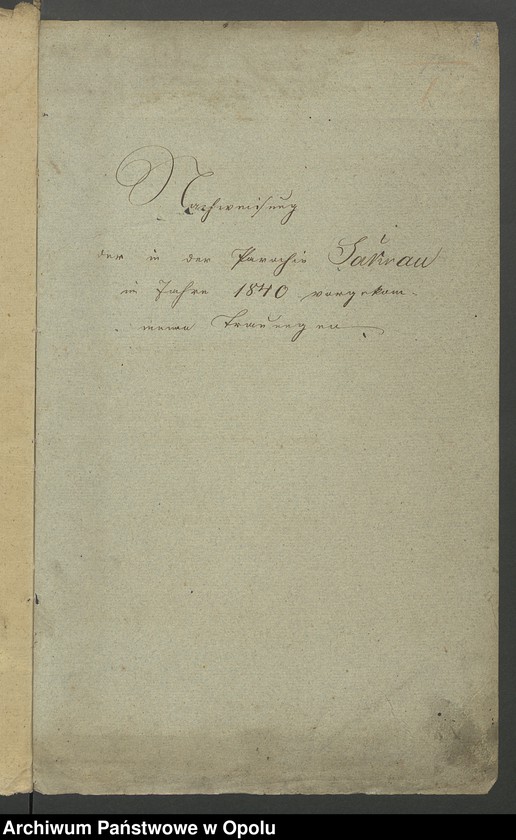 Nachweisung
der in der Parochie Sakrau
im Jahre 1840 vorgekom-
menen Trauungen
Archiwum Państwowe w Opolu